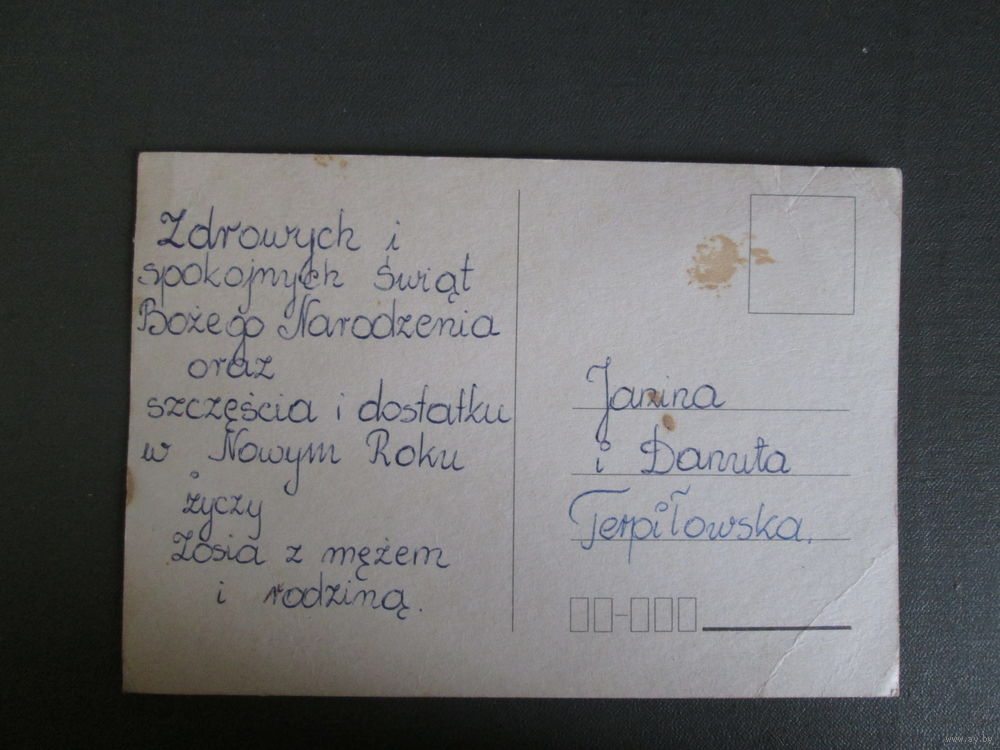 Zdrowych i
spokojnych świąt
Bożego Narodzenia
oraz
szczęścia i dostatku
w Nowym Roku
życzy
Zosia z mężem
i rodziną.
Janina
i Danuta
Terpiłowska.
www.ay.by